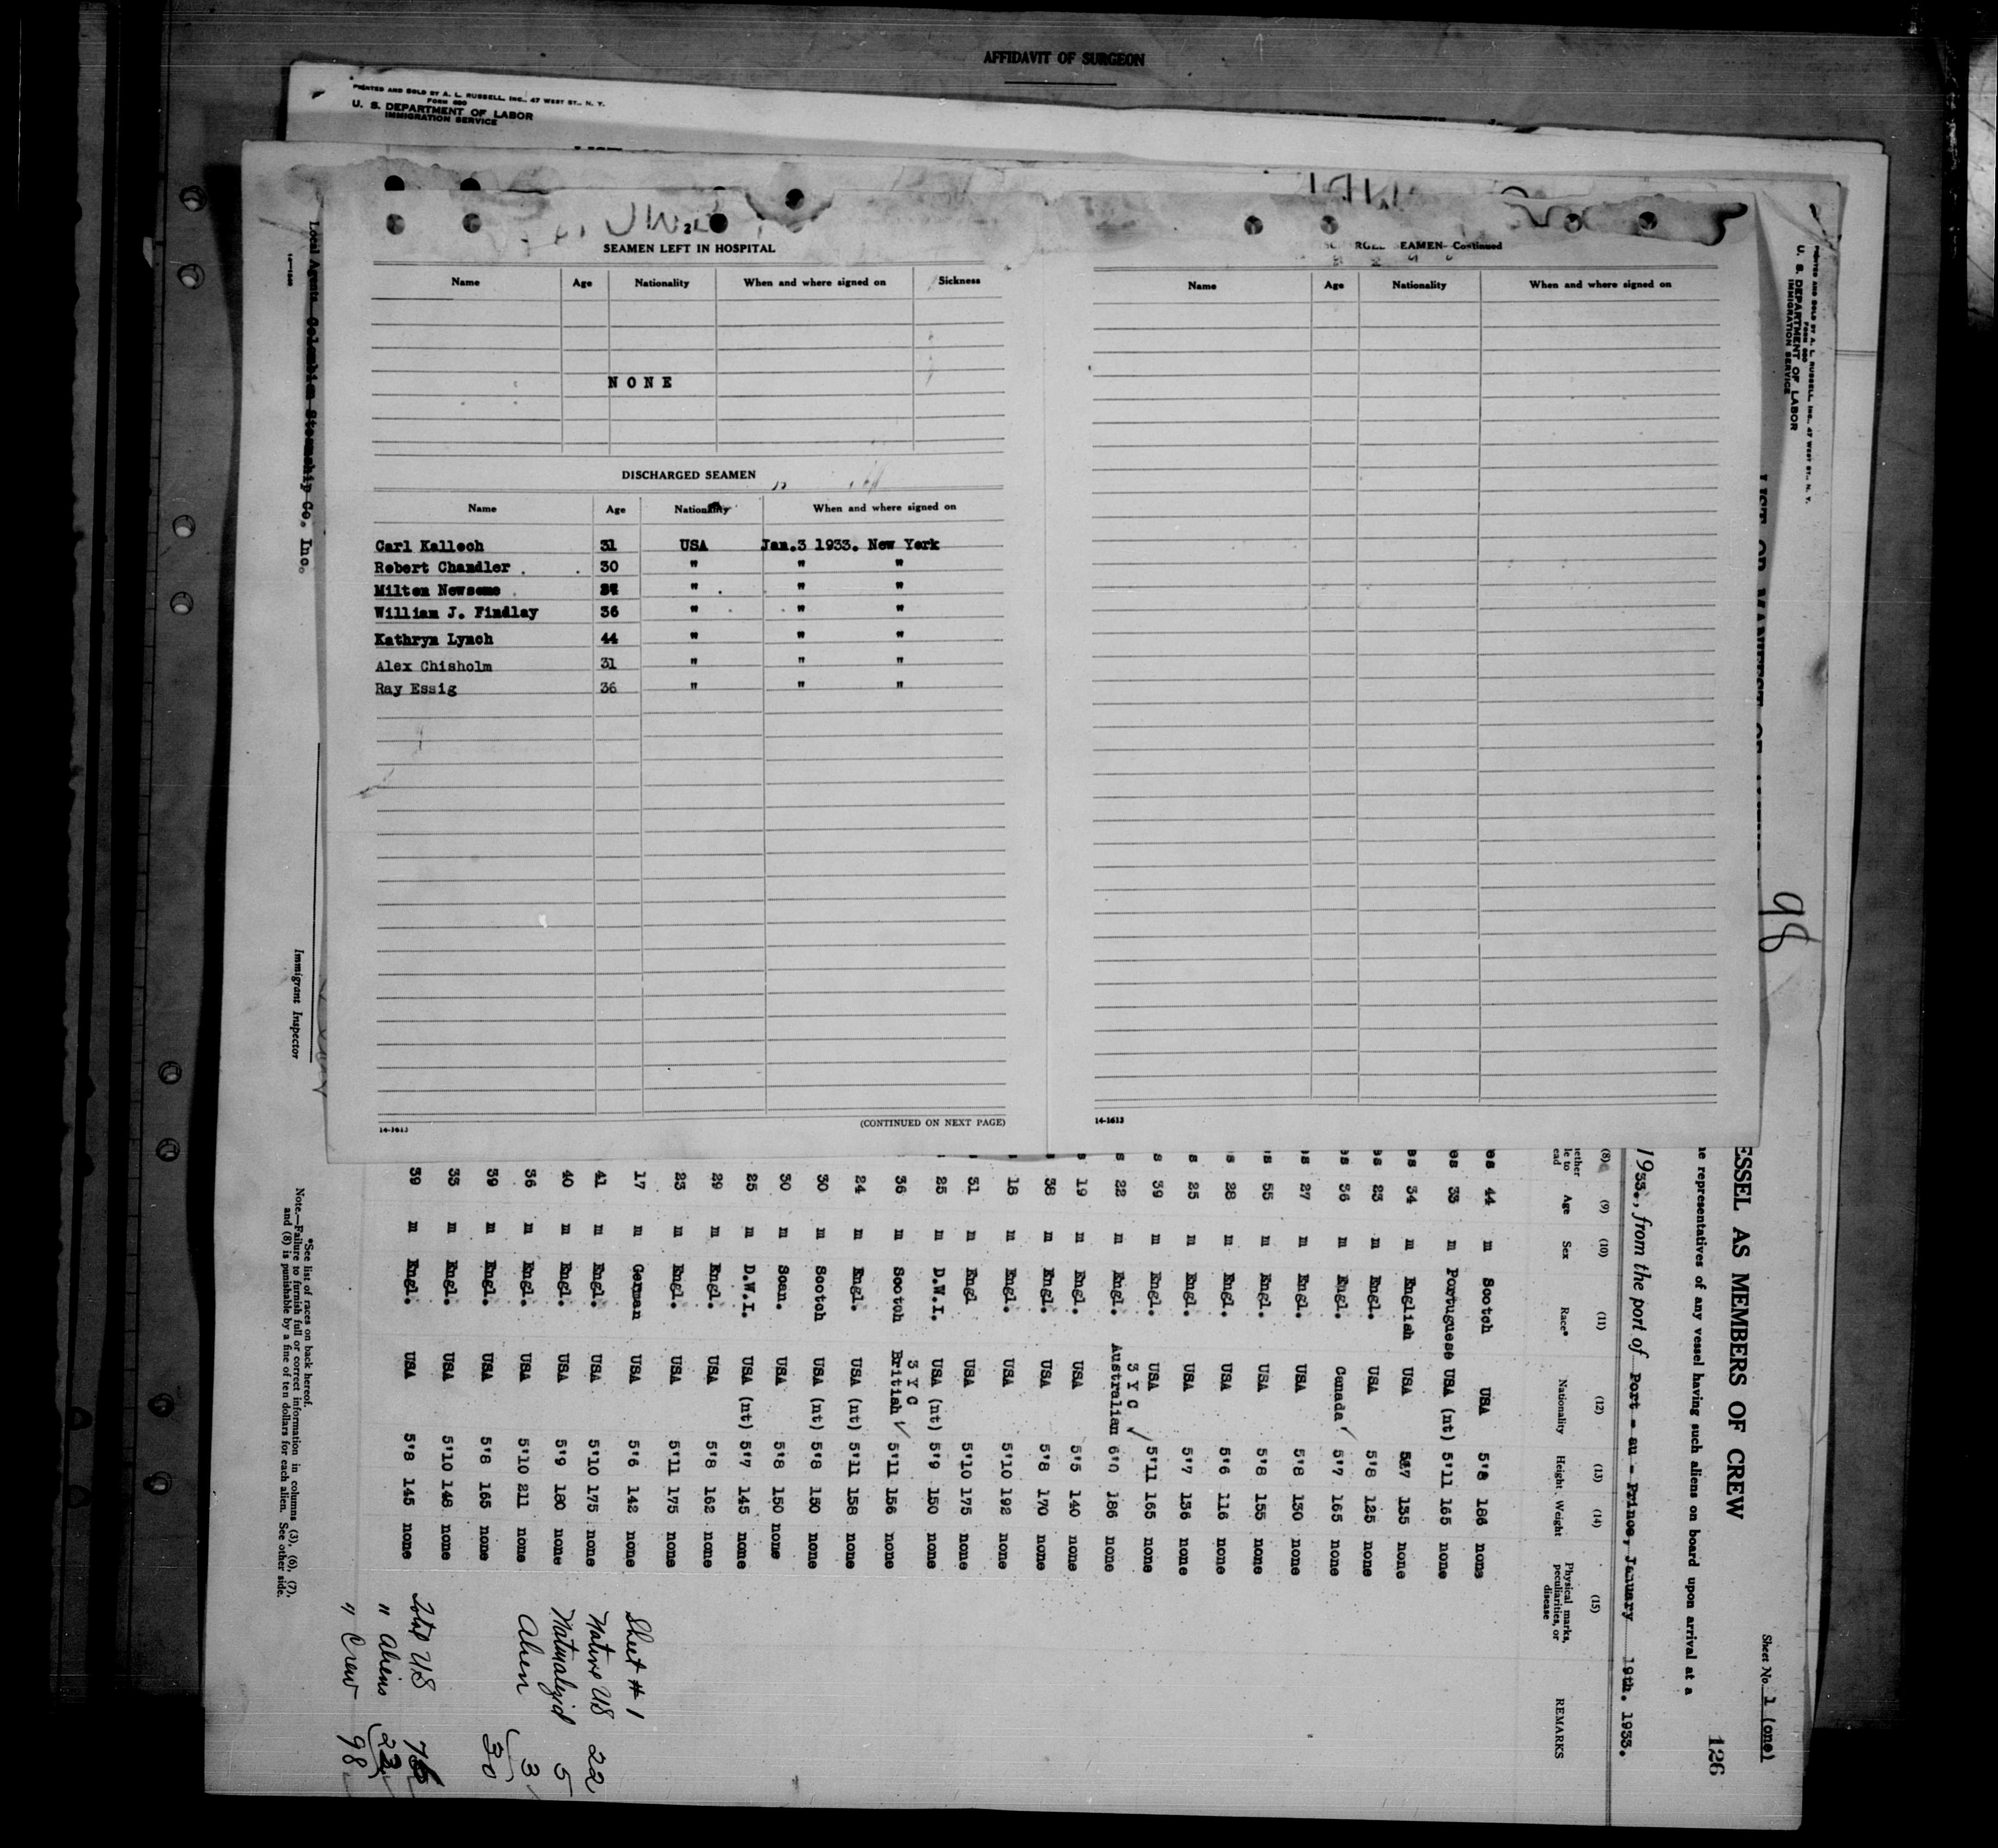 AFFIDAVIT OF SURGEON
PRINTED AND SOLD BY A. L. RUSSELL, INC., 47 WEST ST., N. Y.
FORM 680
U. S. DEPARTMENT OF LABOR
IMMIGRATION SERVICE
2
SEAMEN LEFT IN HOSPITAL
Name Age Nationality When and where signed on Sickness
NONE
DISCHARGED SEAMEN
Name Age Nationality When and where signed on
Carl Kalloch 31 USA Jan.3 1933. New York
Robert Chandler 30 " " "
Milton Newsome " " "
William J. Findlay 36 " " "
Kathryn Lynch 44 " " "
Alex Chisholm 31 " " "
Ray Essig 36 " " "
14-1613
(CONTINUED ON NEXT PAGE)
EAMEN—Continued
Name Age Nationality When and where signed on
14-1613
Local Agents Colombian Steamship Co. Inc.
Immigrant Inspector
PRINTED AND SOLD BY A. L. RUSSELL, INC., 47 WEST ST., N. Y.
FORM 680
U. S. DEPARTMENT OF LABOR
IMMIGRATION SERVICE
98
Sheet No. 1 (one)
126
ESSEL AS MEMBERS OF CREW
he representatives of any vessel having such aliens on board upon arrival at a
1933., from the port of Port - au - Prince, January 19th. 1933.
(8) (9) (10) (11) (12) (13) (14) (15)
Age Sex Race* Nationality Height Weight Physical marks, peculiarities, or disease REMARKS
es 44 m Scotch USA 5'8 186 none
es 33 m Portuguese USA (nt) 5'11 165 none
es 34 m English USA 5'7 135 none
es 23 m Engl. USA 5'8 125 none
es 36 m Engl. Canada ✓ 5'7 165 none
s 27 m Engl. USA 5'8 130 none
s 55 m Engl. USA 5'8 155 none
s 28 m Engl. USA 5'6 116 none
s 25 m Engl. USA 5'7 136 none
s 39 m Engl. USA 5'11 165 none
3 Y C ✓
s 22 m Engl. Australian 6'0 186 none
s 19 m Engl. USA 5'5 140 none
38 m Engl. USA 5'8 170 none
18 m Engl. USA 5'10 192 none
31 m Engl USA 5'10 175 none
25 m D.W.I. USA (nt) 5'9 150 none
3 Y C
36 m Scotch British ✓ 5'11 156 none
24 m Engl. USA (nt) 5'11 158 none
30 m Scotch USA (nt) 5'8 150 none
30 m Scan. USA 5'8 150 none
25 m D.W.I. USA (nt) 5'7 145 none
29 m Engl. USA 5'8 162 none
23 m Engl. USA 5'11 175 none
17 m German USA 5'6 142 none
41 m Engl. USA 5'10 175 none
40 m Engl. USA 5'9 180 none
36 m Engl. USA 5'10 211 none
39 m Engl. USA 5'8 165 none
33 m Engl. USA 5'10 148 none
39 m Engl. USA 5'8 145 none
Sheet # 1
Native US 22
Naturalized 5
Alien 3
30
Total US
" Aliens
" Crew 98
*See list of races on back hereof.
Note.—Failure to furnish full or correct information in columns (3), (6), (7),
and (8) is punishable by a fine of ten dollars for each alien. See other side.